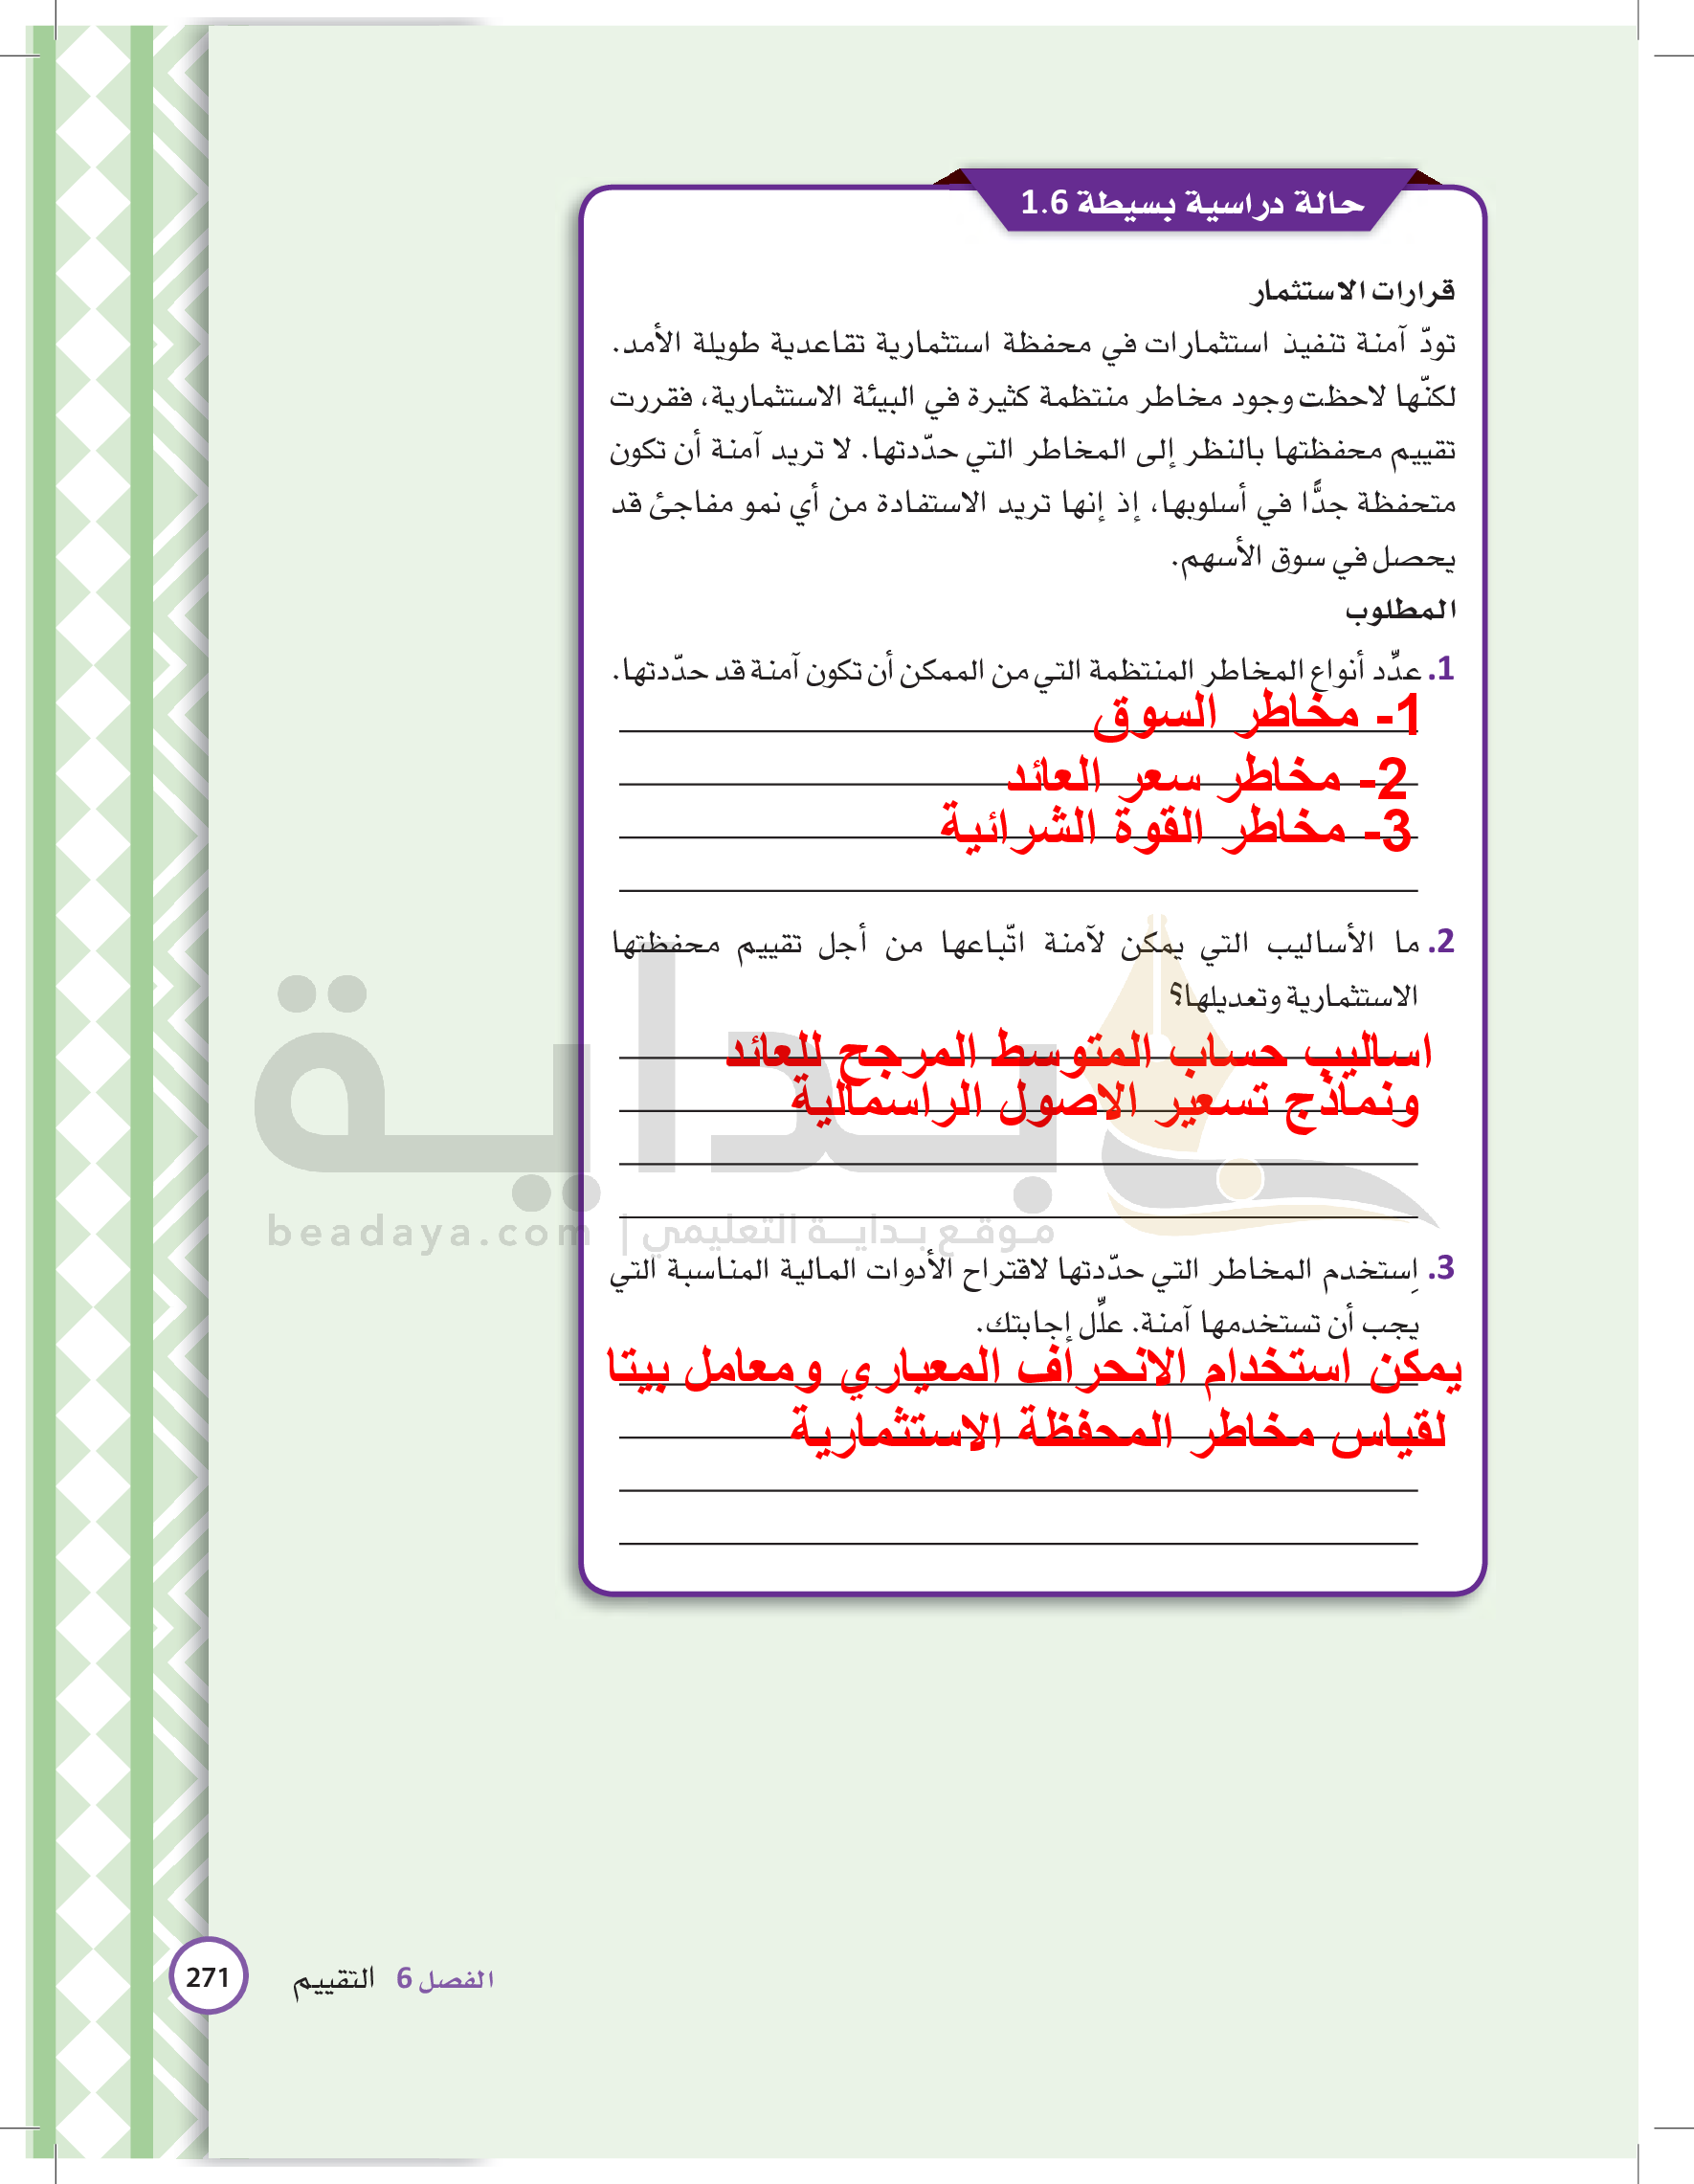 حالة دراسية بسيطة 1.6
قرارات الاستثمار
تودّ آمنة تنفيذ استثمارات في محفظة استثمارية تقاعدية طويلة الأمد.
لكنّها لاحظت وجود مخاطر منتظمة كثيرة في البيئة الاستثمارية، فقررت
تقييم محفظتها بالنظر إلى المخاطر التي حدّدتها. لا تريد آمنة أن تكون
متحفظة جدًّا في أسلوبها، إذ إنها تريد الاستفادة من أي نمو مفاجئ قد
يحصل في سوق الأسهم.
المطلوب
1. عدِّد أنواع المخاطر المنتظمة التي من الممكن أن تكون آمنة قد حدّدتها.
1- مخاطر السوق
2- مخاطر سعر العائد
3- مخاطر القوة الشرائية
2. ما الأساليب التي يمكن لآمنة اتّباعها من أجل تقييم محفظتها
الاستثمارية وتعديلها؟
اساليب حساب المتوسط المرجح للعائد
ونماذج تسعير الاصول الراسمالية
بداية
beadaya.com | موقع بداية التعليمي
3. اِستخدم المخاطر التي حدّدتها لاقتراح الأدوات المالية المناسبة التي
يجب أن تستخدمها آمنة. علِّل إجابتك.
يمكن استخدام الانحراف المعياري ومعامل بيتا
لقياس مخاطر المحفظة الاستثمارية
الفصل 6 التقييم 271